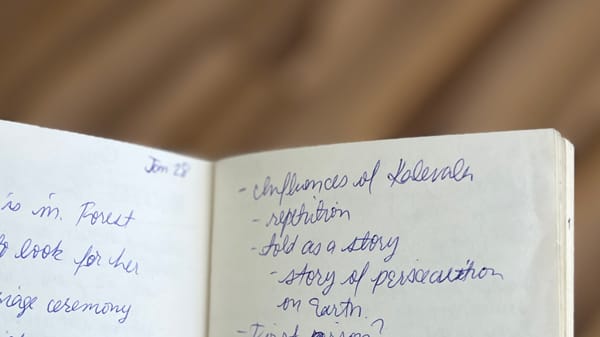 Jan 28
is in. Forest
to look for her
riage ceremony
- Influences of Kalevala
- repetition
- told as a story
- story of persecution
on Earth.
- Twist